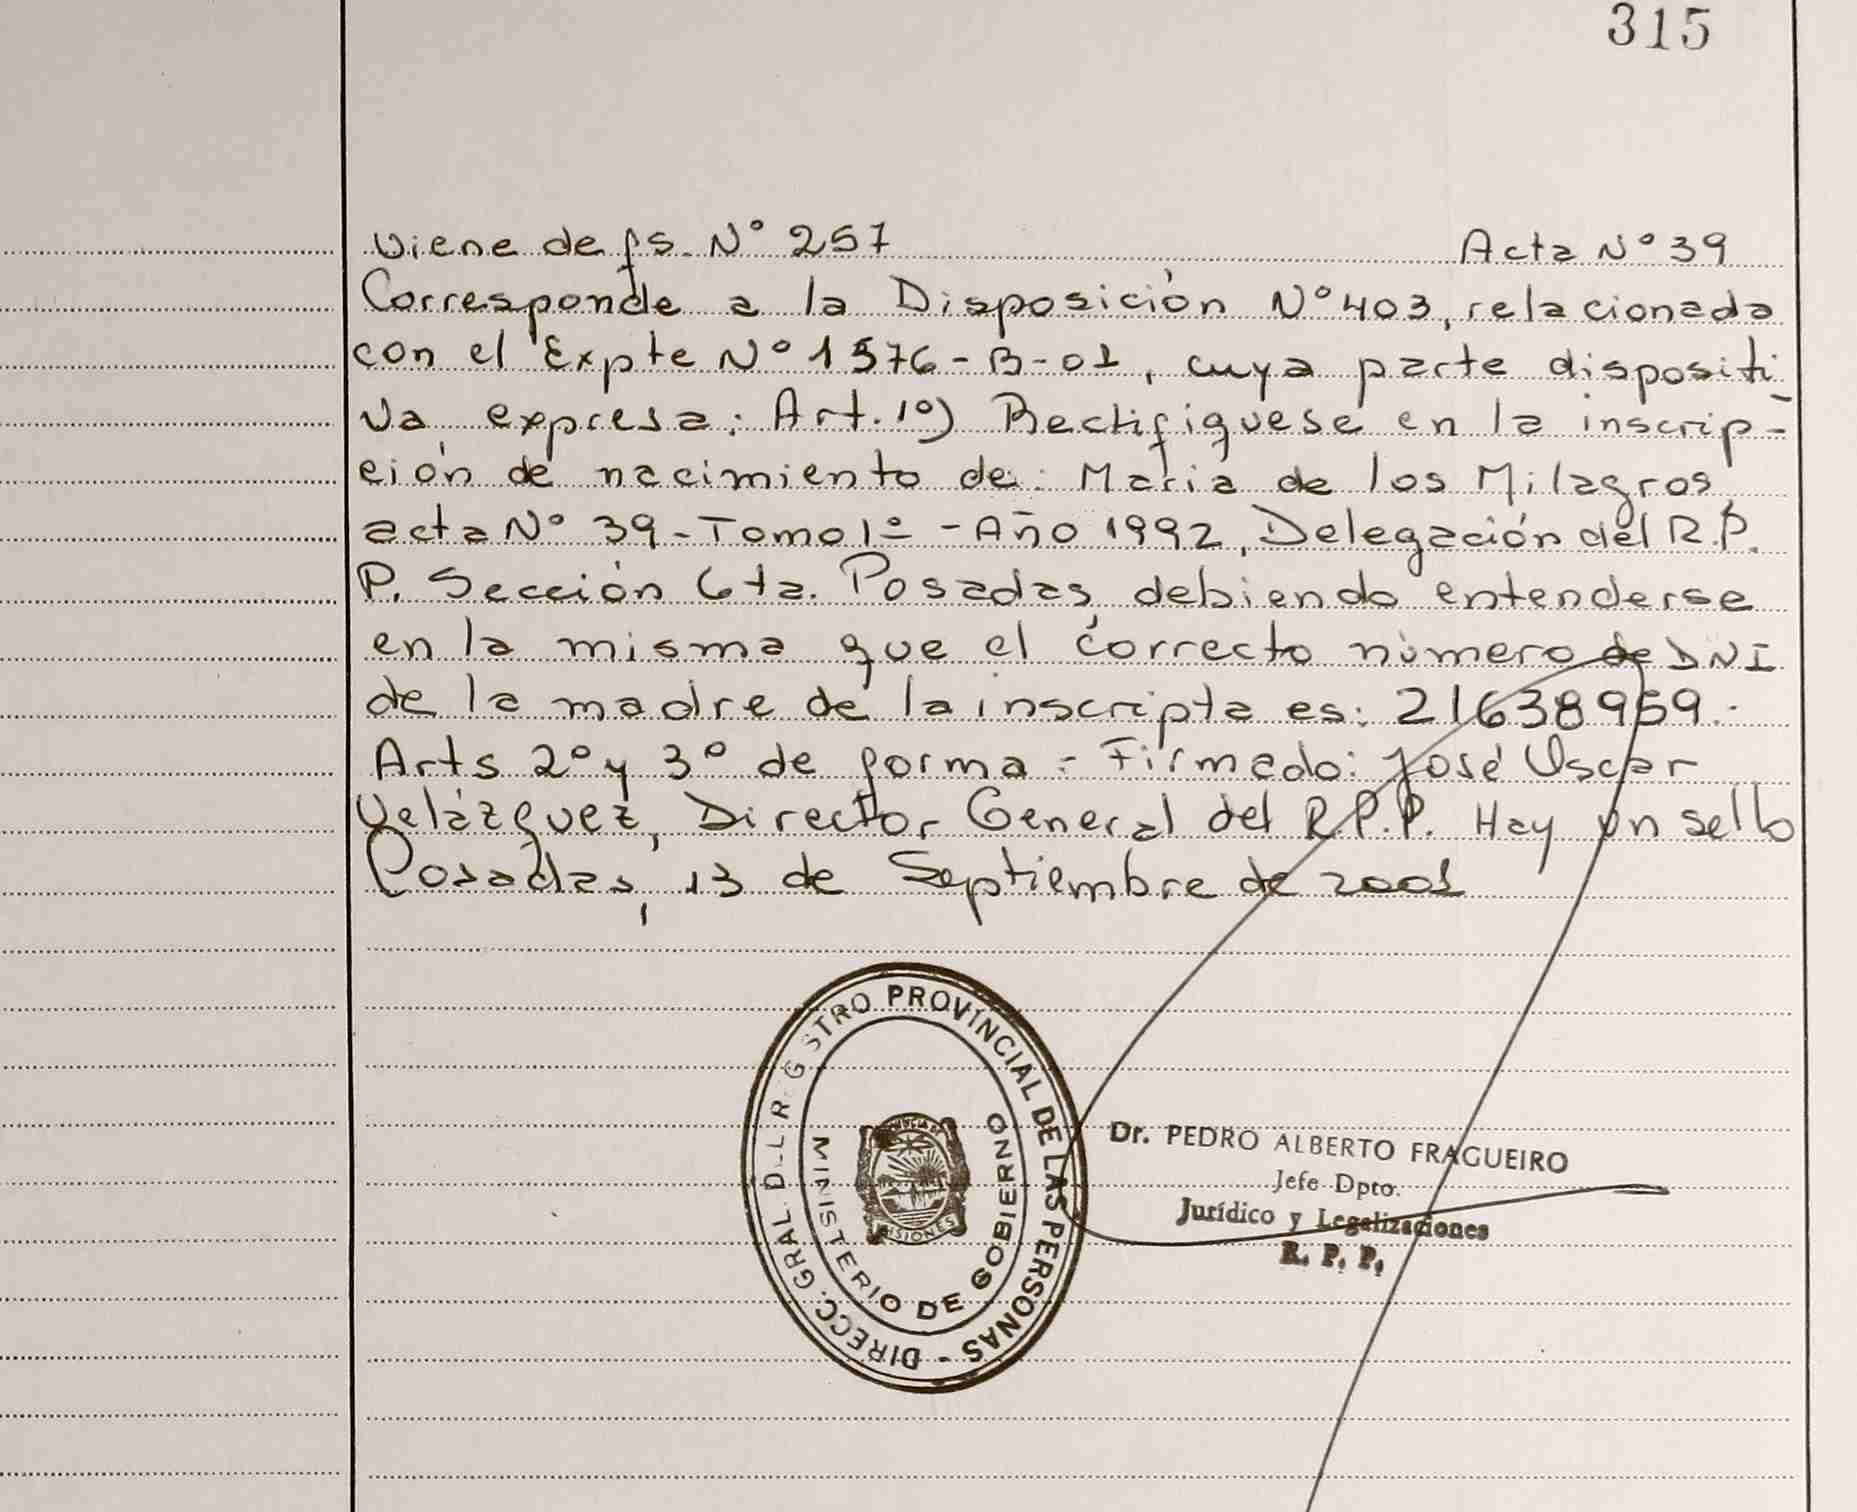 315
Viene de fs. Nº 257 Acta Nº 39
Corresponde a la Disposición Nº 403, relacionada
con el Expte Nº 1576-B-01, cuya parte dispositi
va expresa: Art. 1º) Rectifíquese en la inscrip-
ción de nacimiento de: Maria de los Milagros,
acta Nº 39 - Tomo 1º - Año 1992, Delegación del R.P.
P. Sección 6ta. Posadas, debiendo entenderse
en la misma que el correcto número de DNI
de la madre de la inscripta es: 21638959.-
Arts 2º y 3º de forma - Firmado: José Oscar
Velázquez, Director General del R.P.P. Hay un sello
Posadas, 13 de Septiembre de 2001
DIRECC. GRAL. DEL REGISTRO PROVINCIAL DE LAS PERSONAS -
MINISTERIO DE GOBIERNO
PROVINCIA DE
MISIONES
Dr. PEDRO ALBERTO FRAGUEIRO
Jefe Dpto.
Jurídico y Legalizaciones
R. P. P.